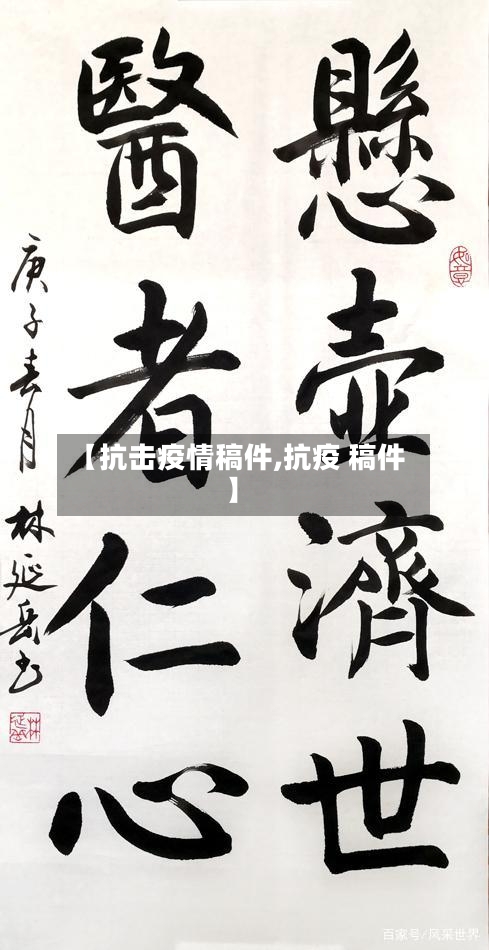 懸壶濟世
醫者仁心
庚子春月 林延岳书
如意
【抗击疫情稿件,抗疫 稿件
】
百家号/风采世界